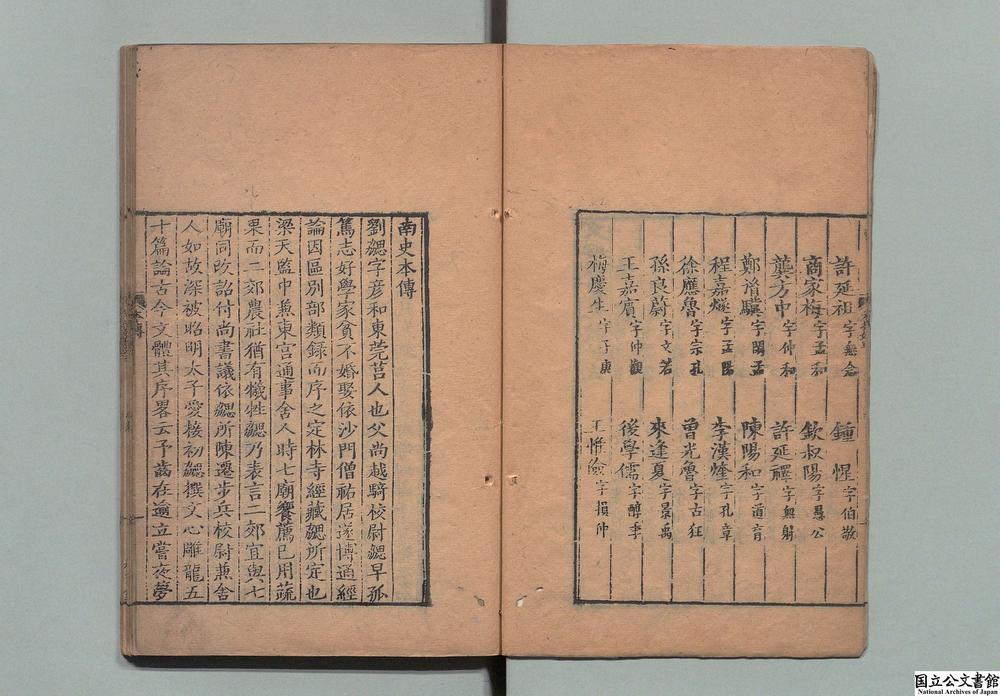 許延祖字無念 鍾惺字伯敬
商家梅字孟和 欽叔陽字愚公
龔方中字仲和 許延禪字無射
鄭胤驥字閑孟 陳陽和字道育
程嘉燧字孟陽 李漢煃字孔章
徐應魯字宗孔 曾光魯字古狂
孫良蔚字文若 來逢夏字景禹
王嘉賓字仲觀 後學儒字醇季
梅慶生字子庾 王惟儉字損仲
南史本傳
劉勰字彥和東莞莒人也父尚越騎校尉勰早孤
篤志好學家貧不婚娶依沙門僧祐居遂博通經
論因區別部類録而序之定林寺經藏勰所定也
梁天監中兼東宮通事舍人時七廟饗薦已用蔬
果而二郊農社猶有犧牲勰乃表言二郊宜與七
廟同改詔付尚書議依勰所陳遷步兵校尉兼舍
人如故深被昭明太子愛接初勰撰文心雕龍五
十篇論古今文體其序畧云予齒在逾立嘗夜夢
国立公文書館
National Archives of Japan